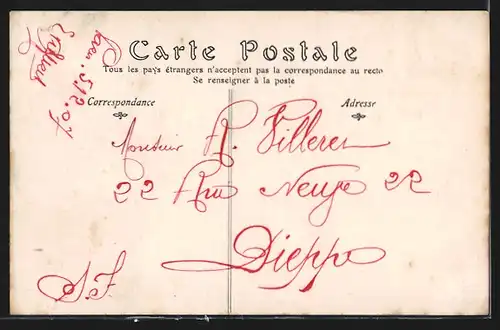 Carte Postale
Tous les pays étrangers n'acceptent pas la correspondance au recto
Se renseigner à la poste
Correspondance
Adresse
5.12.07
Monsieur A. Villeret
22 Rue Neuve 22
Dieppe
S.F.